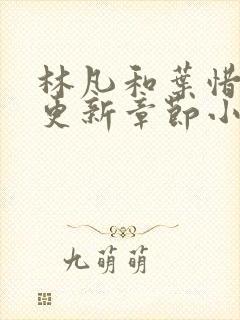 林凡和葉惜
更新章節小
九萌萌